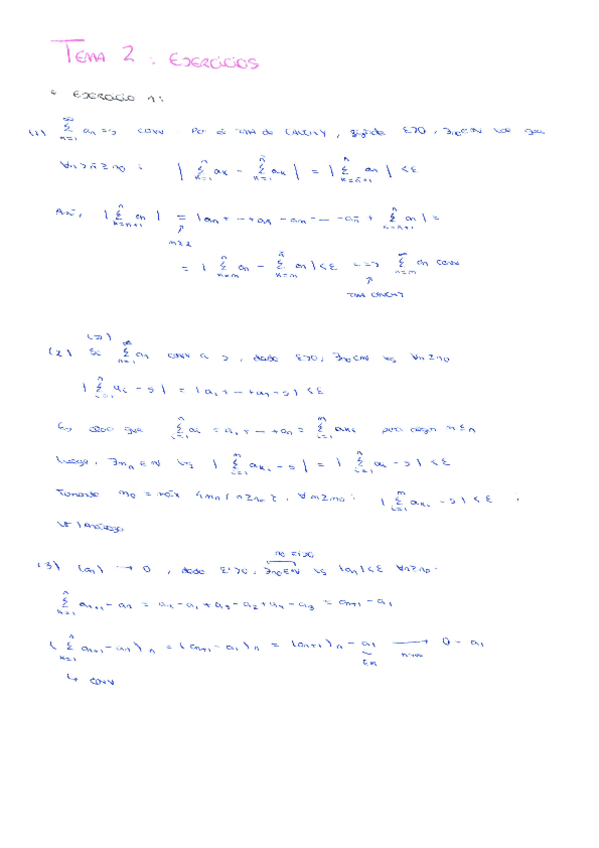 TEMA 2 : EJERCICIOS
* EJERCICIO 1:
(1) ∑_{n=1}^{∞} an => CONV. Por el TMA de CAUCHY, fijado ε>0, ∃n0∈ℕ tal que
∀n>ñ≥n0 : | ∑_{k=1}^{n} ak - ∑_{k=1}^{ñ} ak | = | ∑_{k=ñ+1}^{n} an | < ε
Así, | ∑ an | = | an + ··· + an - an - ··· - an + ∑ an | =
= | ∑_{k=m}^{n} an - ∑_{k=m}^{ñ} an | < ε <=> ∑_{n=m}^{∞} an CONV
TMA CAUCHY
(=>)
(2) Si ∑_{n=1}^{∞} an CONV a s, dado ε>0, ∃n0∈ℕ tq ∀n≥n0
| ∑_{i=1}^{n} ai - s | = | a1 + ··· + an - s | < ε
Es claro que ∑_{i=1}^{n} ai = a1 + ··· + an = ∑_{i=1}^{m} aki para
Luego, ∃mn ∈ ℕ tq | ∑_{i=1}^{m} aki - s | = | ∑_{i=1}^{n} ai - s | < ε
Tomando m0 = máx {mn / n≥n0}, ∀m≥m0 : | ∑_{i=1}^{m} aki - s | < ε.
Análogo
n0 fijo
(3) (an) → 0, dado ε>0, ∃n0∈ℕ tq |an|<ε ∀n≥n0.
∑_{n=1}^{n} an+1 - an = a2 - a1 + a3 - a2 + a4 - a3 = an+1 - a1
( ∑_{k=1}^{n} an+1 - an )n = (an+1 - a1)n = (an+1)n - a1 → 0 - a1
∈ℝ n→∞
↳ CONV